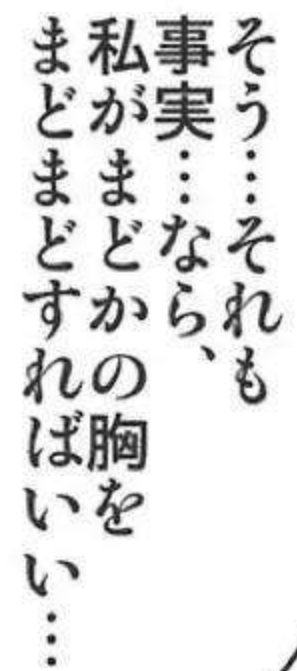 そう…それも
事実…なら、
私がまどかの胸を
まどまどすればいい…